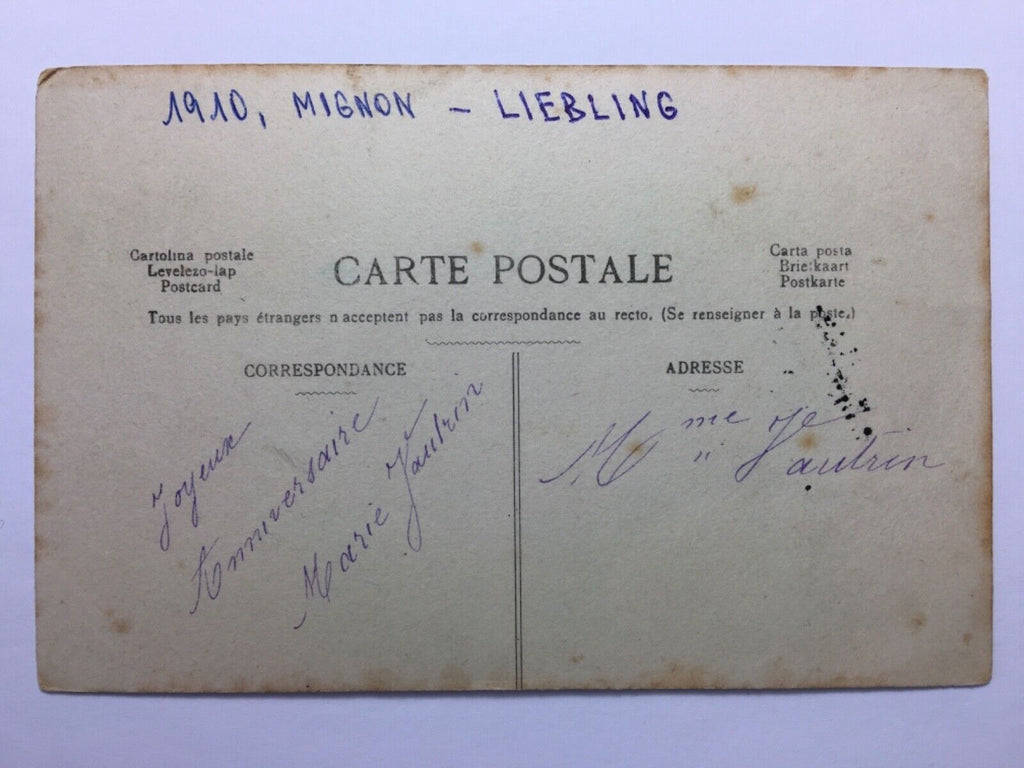 1910, MIGNON - LIEBLING
Cartolina postale
Levelezo-lap
Postcard
CARTE POSTALE
Carta posta
Briefkaart
Postkarte
Tous les pays étrangers n acceptent pas la correspondance au recto. (Se renseigner à la poste.)
CORRESPONDANCE
Joyeux
Anniversaire
Marie Vautrin
ADRESSE
Mme
" Vautrin